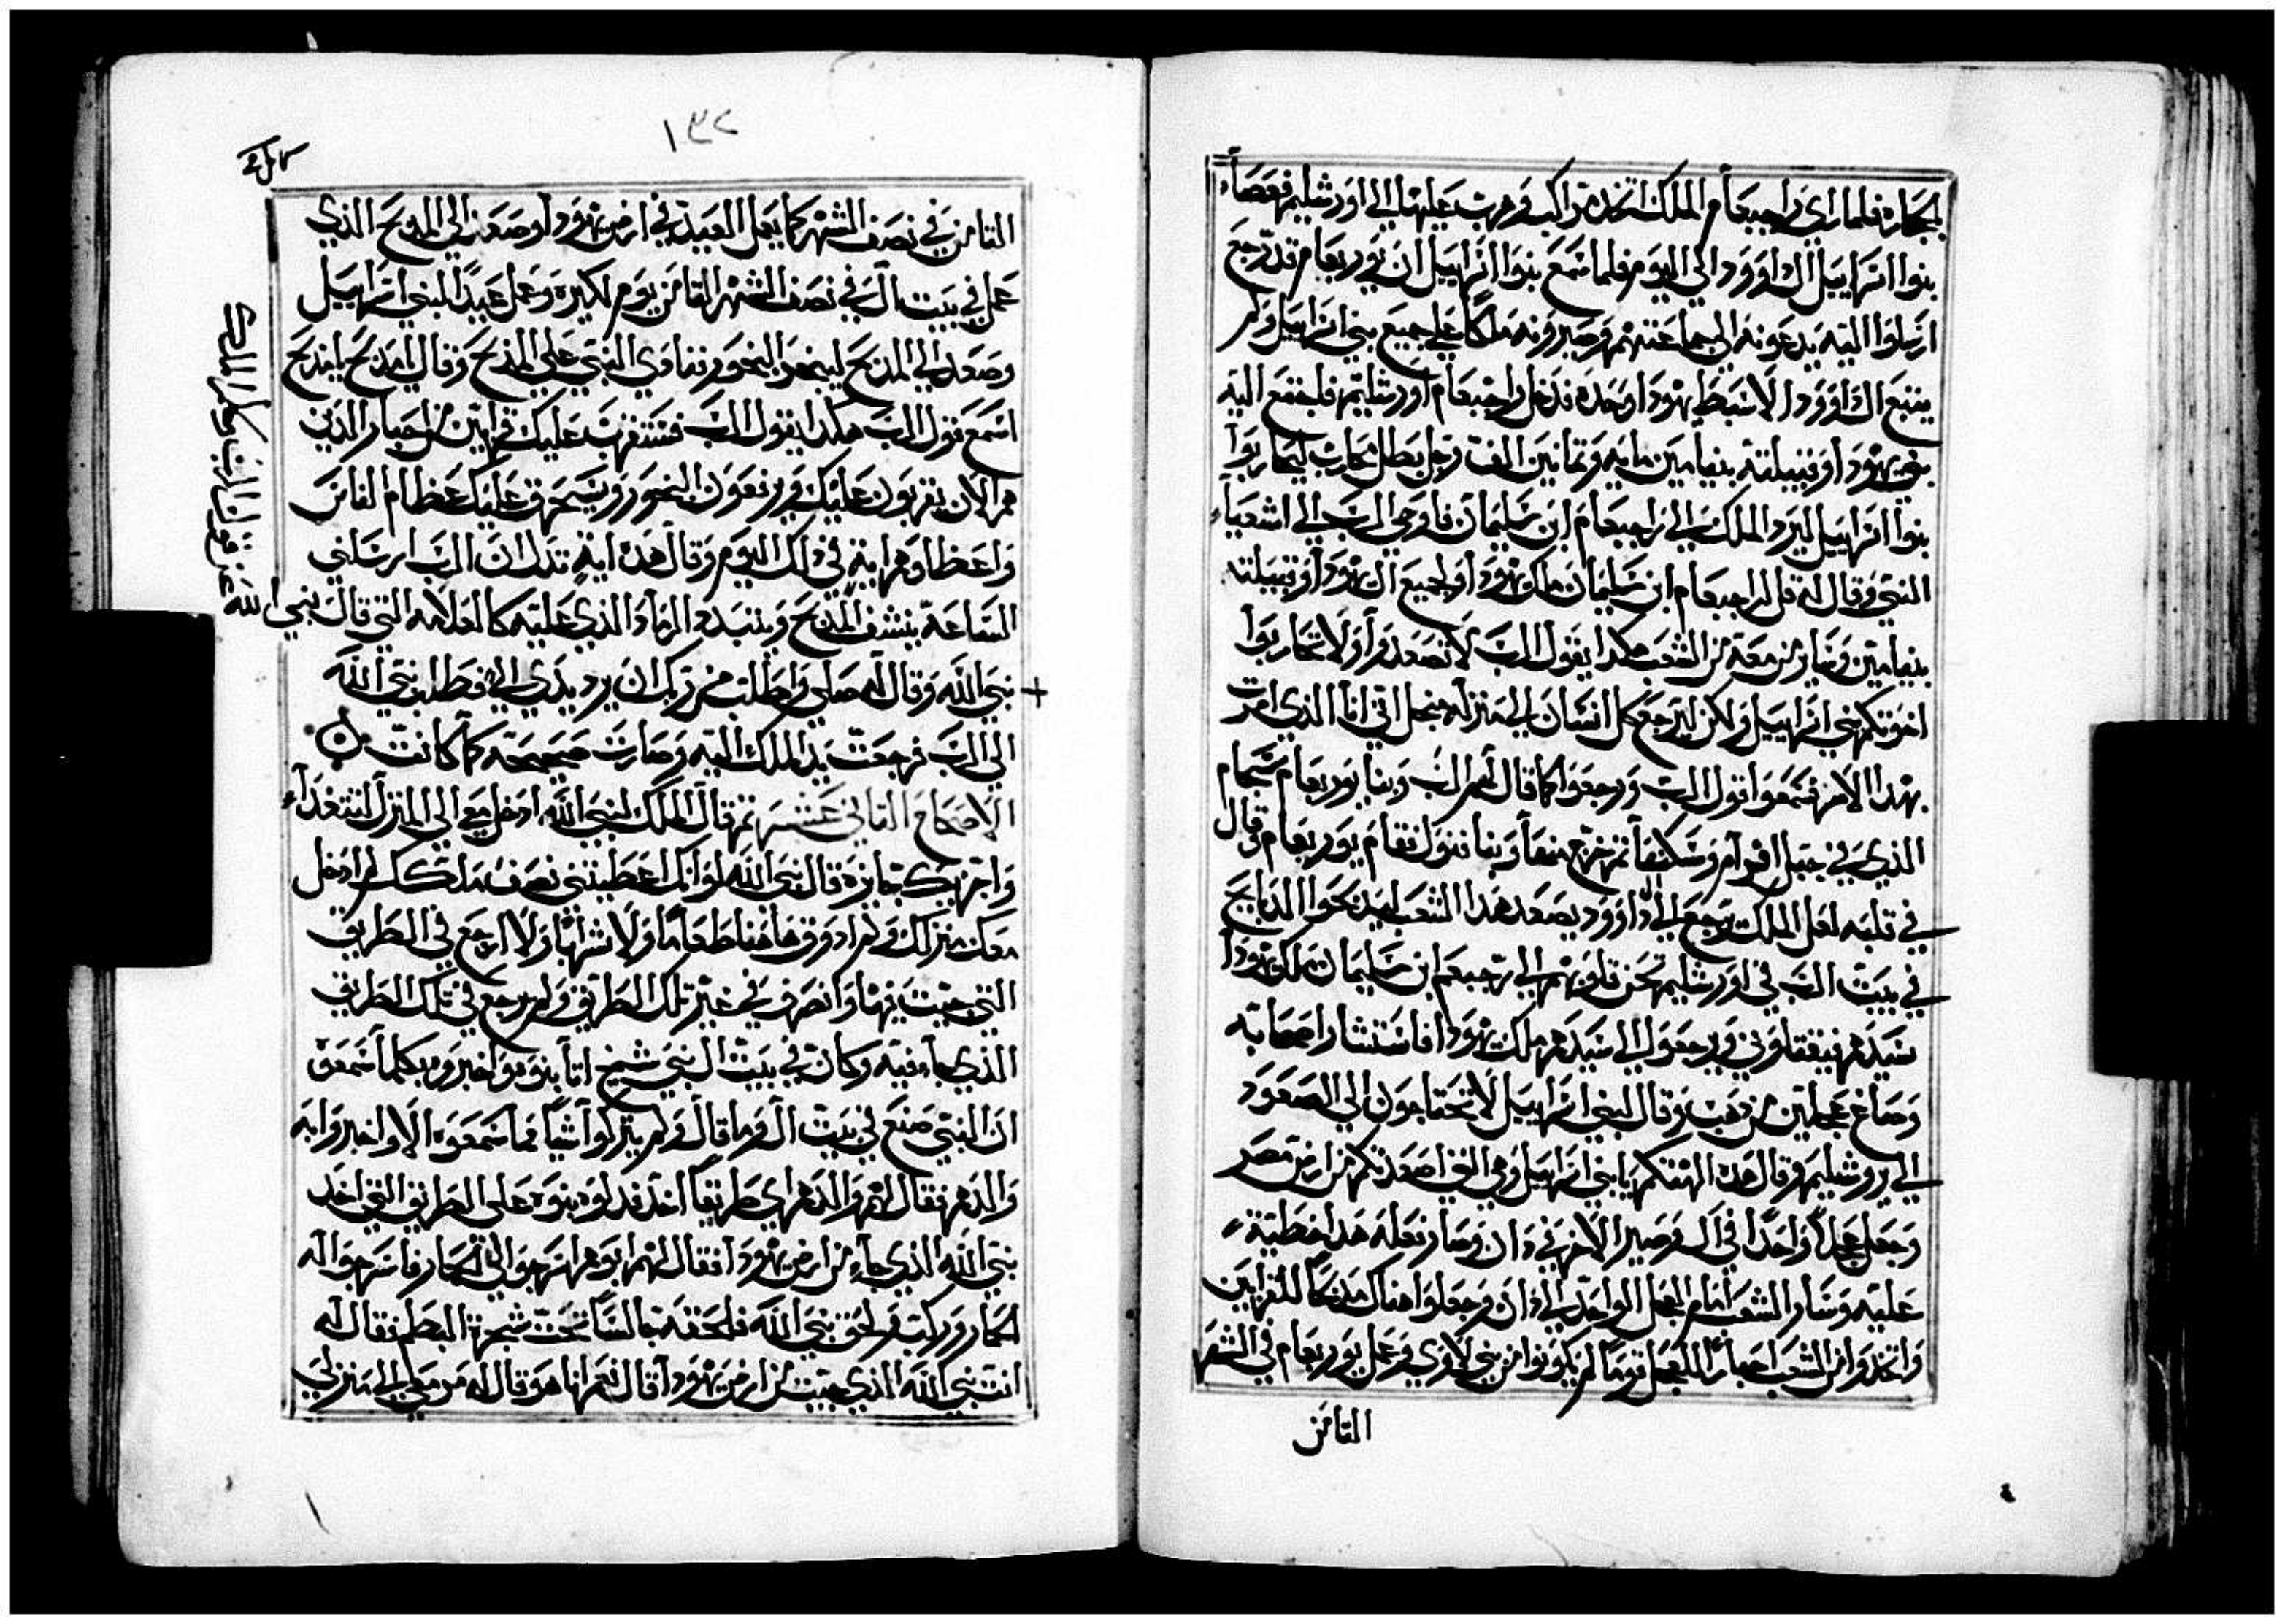 بالحجاره فلما راى راجبعام الملك اتخذ مراكب وهرب عليها الى اورشليم فعصاء
بنوا اسراييل ال داوود الى اليوم فلما سمع بنوا اسراييل ان يوربعام قد رجع
ارسلوا اليه يدعونه الى جماعتهم وصيرونه ملكا على جميع بني اسراييل ولم
يتبع ال داوود الا سبط يهودا وحده فدخل راجبعام اورشليم فاجتمع اليه
بني يهودا وقبيلته بنيامين مايه وثمانين الف رجل بطل محارب ليحاربوا
بنوا اسراييل ليرد الملك الى راجبعام ابن سليمان فاوحى الرب الى اشعياء
النبي وقال له قل لراجبعام ابن سليمان ملك يهودا ولجميع ال يهودا وقبيلته
بنيامين وساير من معه من الشعب هكدا يقول الرب لا تصعدوا ولا تحاربوا
اخوتكم بني اسراييل ولكن ليرجع كل انسان الى منزله من اجل اني انا الذي امرت
بهذا الامر فسمعوا قول الرب ورجعوا كما قال لهم الرب وبنا يوربعام شجام
الذي في جبل افرام وسكنها ثم خرج منها وبنا فنول فقام يوربعام وقال
في قلبه لعل الملك يرجع الى ال داوود يصعد هذا الشعب ليدبحوا الدبايح
في بيت الرب في اورشليم تحن قلوبهم الى رجبعم ابن سليمان ملك يهودا
سيدهم فيقتلوني ويرجعوا الى سيدهم ملك يهودا فاستشار اصحابه
وصاغ عجلين من دهب وقال لبني اسراييل لا تحتاجون الى الصعود
الى يروشليم وقال هده الهتكم يا بني اسراييل وهي التي اصعدتكم من ارض مصر
وجعل عجلا واحدا في ال وصير الاخر في دان وصار فعله هدا خطية
عليه وسار الشعب امام العجل الواحد الى دان وجعلوا هناك مدبحا للقرابين
واتخدوا من الشعب احبارا للعجل قوما لم يكونوا من بني لاوي وعمل يوربعام في الشهر
الثامن
١٣٢
الثامن في نصف الشهر كما يعمل العيد في ارض يهودا وصعد الى المدبح الذي
عمل في بيت ال في نصف الشهر الثامن يوم لكبيره وعمل عيدا لبني اسراييل
وصعد الى المدبح ليبخر البخور فنادى النبي على المدبح وقال المدبح يا مدبح
اسمع قول الرب هكدا يقول الرب عليك قرابين من احبار الذين
هم الان يقربون عليك ويرفعون البخور ويستحرق عليك عظام الناس
واعطاهم اية في دلك اليوم وقال هده اية تدل ان الرب ارسلني
الساعة ينشف المدبح ويتبدد الرماد الذي عليه كالعلامه التي قال نبي الله
نبي الله وقال له صلي واطلب من ربك ان يرد يدي الي فطلب نبي الله
الى الرب فرجعت يد الملك اليه وصارت صحيحه كما كانت
الاصحاح الثاني عشر ثم قال الملك لنبي الله ادخل معي الى المنزل لنتغداء
واجزيك بجايزه قال نبي الله لو انك اعطيتني نصف ملكك لم ادخل
معك منزلك ولم ادوق هاهنا طعاما ولا شرابا ولا ارجع في الطريق
التي جيت فيها وانصرف في غير تلك الطريق ولم يرجع في تلك الطريق
الذي جاء فيه وكان في بيت ال نبي شيخ اتا بنوه واخبروه بكلما سمعوه
ان النبي صنع في بيت ال وما قال ولم يتركوا شيا مما سمعوه الا واخبروا به
والدهم فقال لهم والدهم اي طريقا اخد فدلوه بنوه على الطريق التي اخد
نبي الله الذي جاء من ارض يهودا فقال لهم ابوهم اسرجوا لي الحمار فاسرجوا له
الحمار وركب ولحق نبي الله فلحقه جالسا تحت شجرة البطم فقال له
انت نبي الله الذي جيت من ارض يهودا قال نعم انا هو قال له مر معي الى منزلي